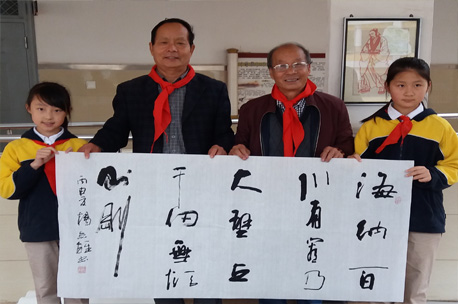 海纳百
川有容乃
大壁立
千仞無欲
则剛